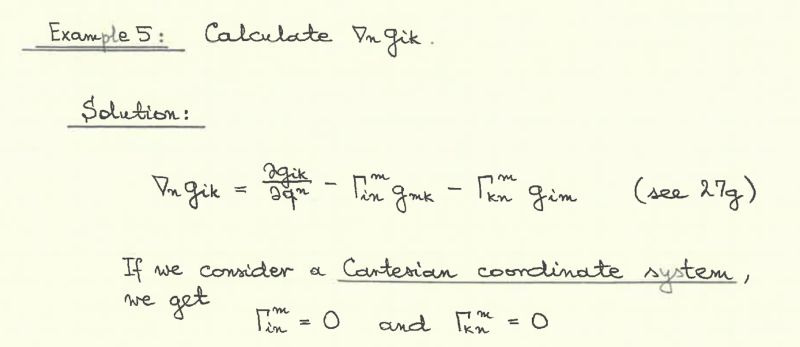 Example 5: Calculate ∇n gik.
Solution:
∇n gik = ∂gik/∂qⁿ − Γᵐin gmk − Γᵐkn gim (see 27g)
If we consider a Cartesian coordinate system,
we get
Γᵐin = 0 and Γᵐkn = 0